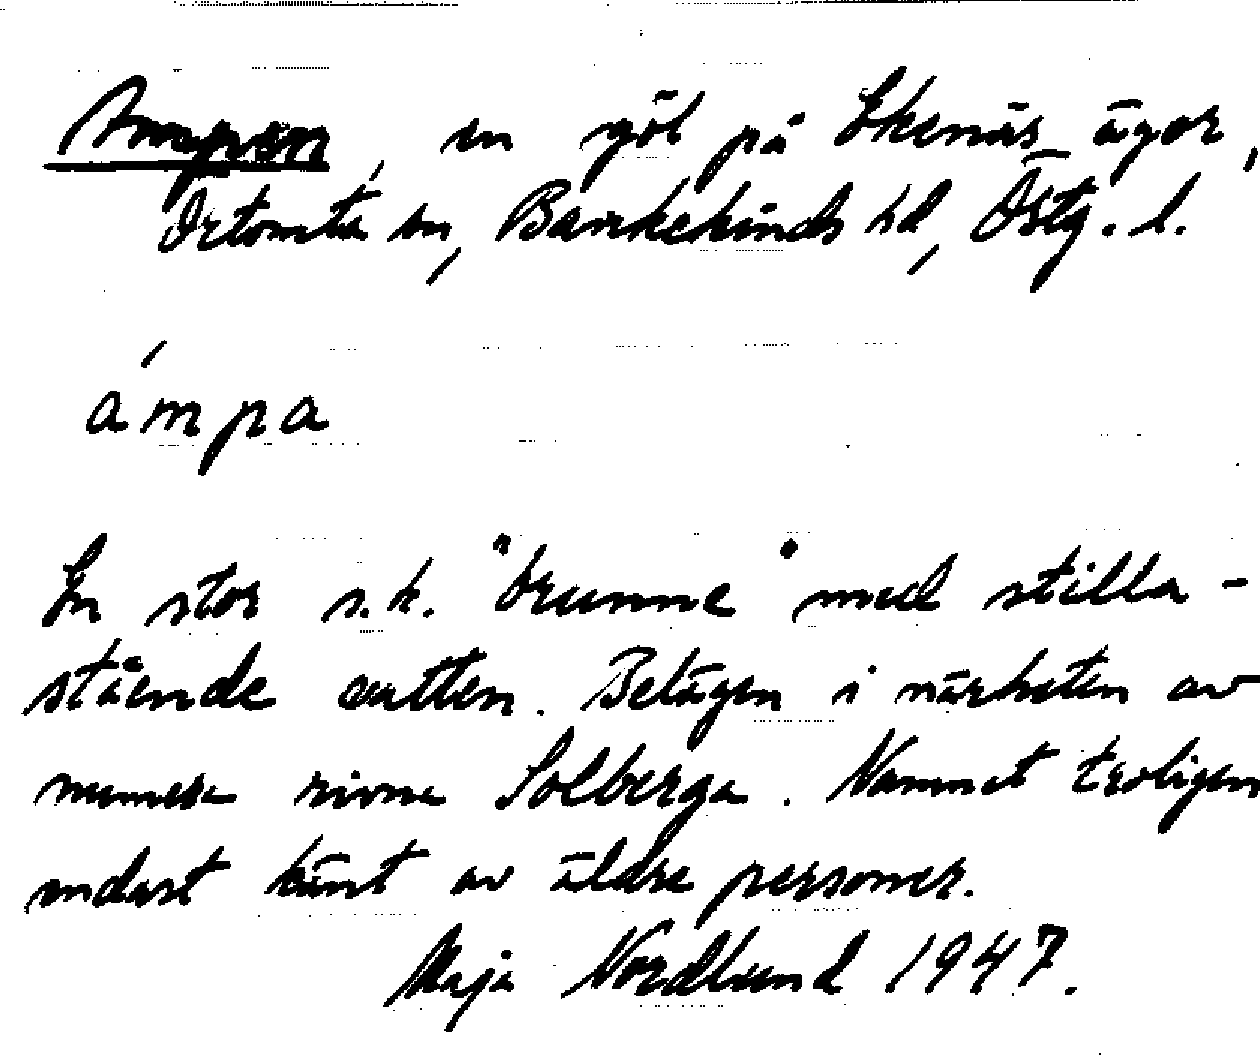 Ampen, en göl på Ekenäs ägor,
Örtomta sn, Bankekinds hd, Östg. l.
ámpa
En stor s.k. "brunne" med stilla-
stående vatten. Belägen i närheten av
numera rivna Solberga. Namnet troligen
endast känt av äldre personer.
Maja Nordlund 1947.